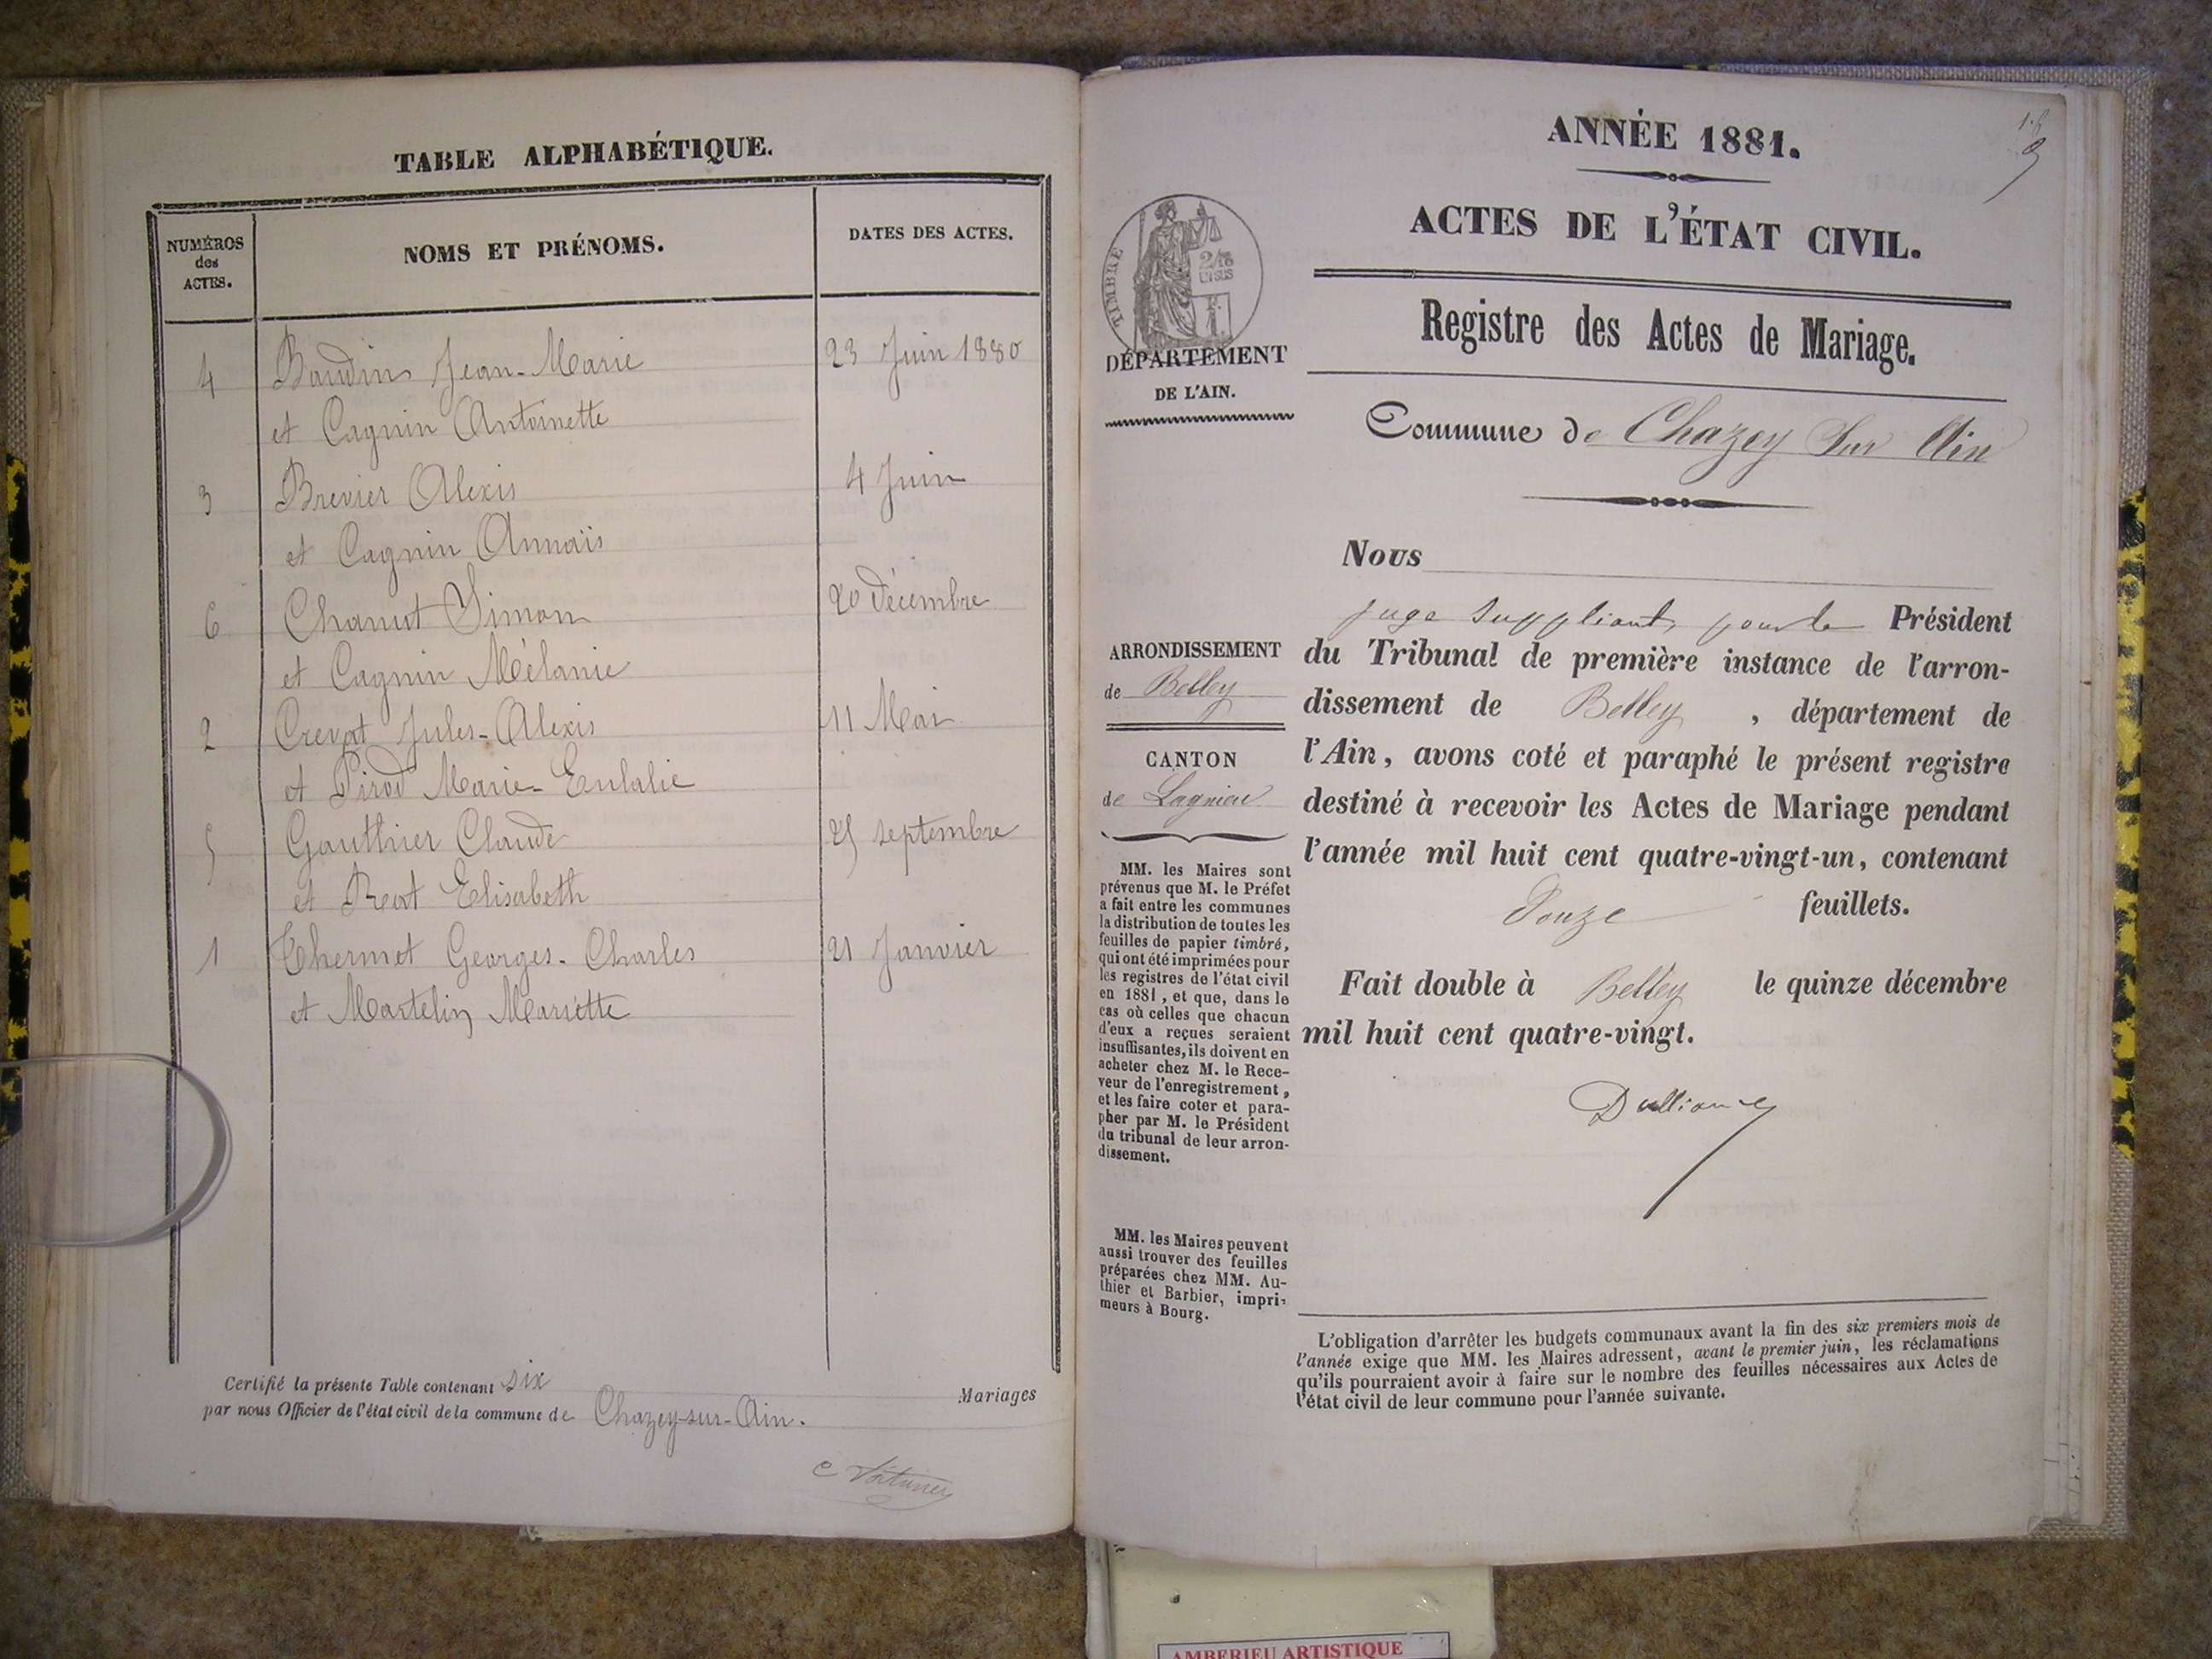 TABLE ALPHABÉTIQUE.
NUMÉROS
des
ACTES.
NOMS ET PRÉNOMS.
DATES DES ACTES.
4 Baudin Jean-Marie 23 Juin 1880
et Cagnin Antoinette
3 Brevier Alexis 4 Juin
et Cagnin Annaïs
6 Chanut Simon 20 décembre
et Cagnin Mélanie
2 Crevat Jules-Alexis 11 Mai
et Pirod Marie-Eulalie
5 Gauthier Claude 25 septembre
et Elisabeth
1 Thermet Georges-Charles 21 Janvier
et Martelin Mariette
Certifié la présente Table contenant six Mariages
par nous Officier de l'état civil de la commune de Chazey-sur-Ain.
ANNÉE 1881.
ACTES DE L'ÉTAT CIVIL.
TIMBRE
2/10
EN SUS
Registre des Actes de Mariage.
DÉPARTEMENT
DE L'AIN.
Commune de Chazey Sur Ain
Nous
juge suppléant, pour le Président
du Tribunal de première instance de l'arron-
dissement de Belley, département de
l'Ain, avons coté et paraphé le présent registre
destiné à recevoir les Actes de Mariage pendant
l'année mil huit cent quatre-vingt-un, contenant
Douze feuillets.
Fait double à Belley le quinze décembre
mil huit cent quatre-vingt.
ARRONDISSEMENT
de Belley
CANTON
de Lagnieu
MM. les Maires sont
prévenus que M. le Préfet
a fait entre les communes
la distribution de toutes les
feuilles de papier timbré,
qui ont été imprimées pour
les registres de l'état civil
en 1881, et que, dans le
cas où celles que chacun
d'eux a reçues seraient
insuffisantes, ils doivent en
acheter chez M. le Rece-
veur de l'enregistrement,
et les faire coter et para-
pher par M. le Président
du tribunal de leur arron-
dissement.
MM. les Maires peuvent
aussi trouver des feuilles
préparées chez MM. Au-
thier et Barbier, impri-
meurs à Bourg.
L'obligation d'arrêter les budgets communaux avant la fin des six premiers mois de
l'année exige que MM. les Maires adressent, avant le premier juin, les réclamations
qu'ils pourraient avoir à faire sur le nombre des feuilles nécessaires aux Actes de
l'état civil de leur commune pour l'année suivante.
AMBERIEU ARTISTIQUE